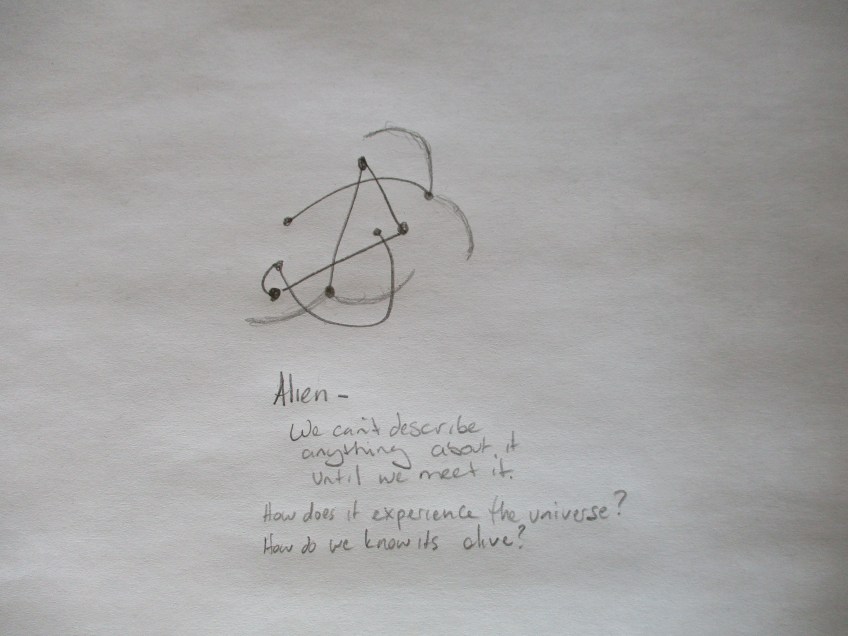 Alien -
We can't describe
anything about it
until we meet it.
How does it experience the universe?
How do we know its alive?